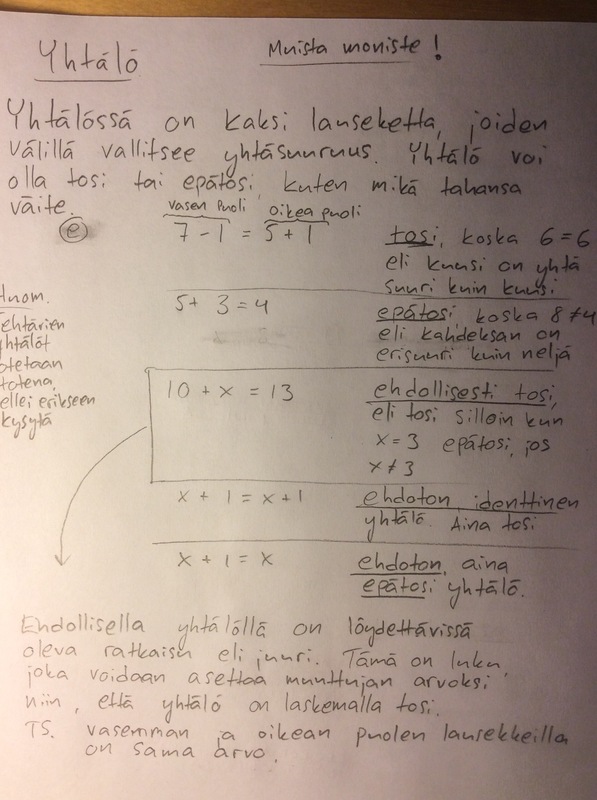 Yhtälö
Muista moniste!
Yhtälössä on kaksi lauseketta, joiden
välillä vallitsee yhtäsuuruus. Yhtälö voi
olla tosi tai epätosi, kuten mikä tahansa
väite.
vasen puoli oikea puoli
e
7 - 1 = 5 + 1
tosi, koska 6 = 6
eli kuusi on yhtä
suuri kuin kuusi
5 + 3 = 4
epätosi, koska 8 ≠ 4
eli kahdeksan on
erisuuri kuin neljä
10 + x = 13
ehdollisesti tosi,
eli tosi silloin kun
x = 3 epätosi, jos
x ≠ 3
x + 1 = x + 1
ehdoton, identtinen
yhtälö. Aina tosi
x + 1 = x
ehdoton, aina
epätosi yhtälö.
Huom.
tehtävien
yhtälöt
otetaan
totena,
ellei erikseen
kysytä
Ehdollisella yhtälöllä on löydettävissä
oleva ratkaisu eli juuri. Tämä on luku,
joka voidaan asettaa muuttujan arvoksi
niin, että yhtälö on laskemalla tosi.
TS. vasemman ja oikean puolen lausekkeilla
on sama arvo.